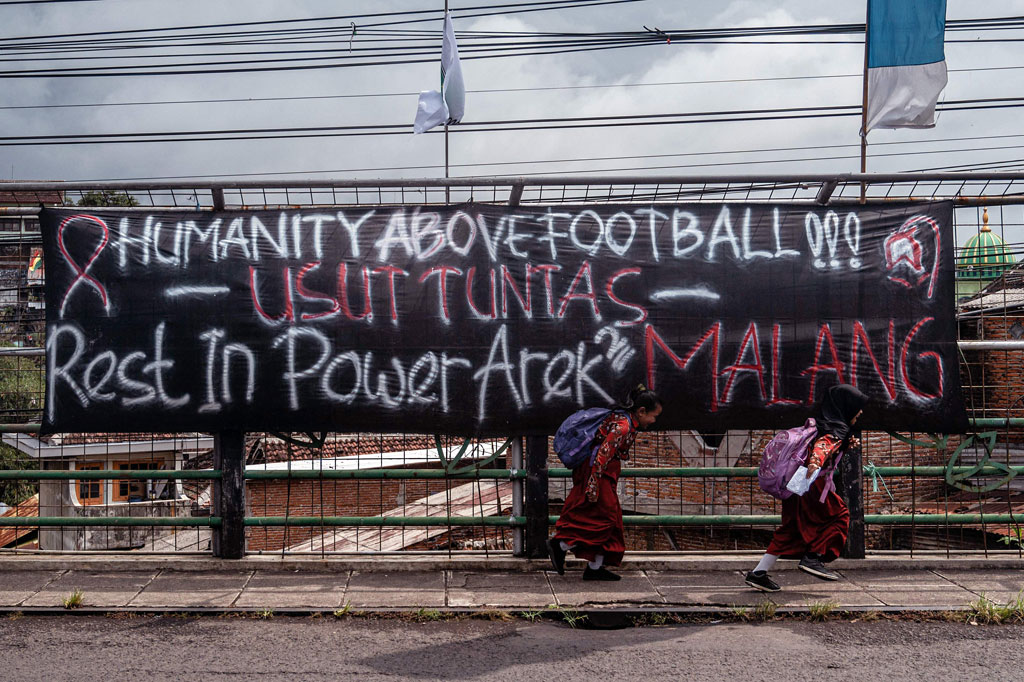 HUMANITY ABOVE FOOTBALL !!!
- USUT TUNTAS -
Rest In Power Arek² MALANG